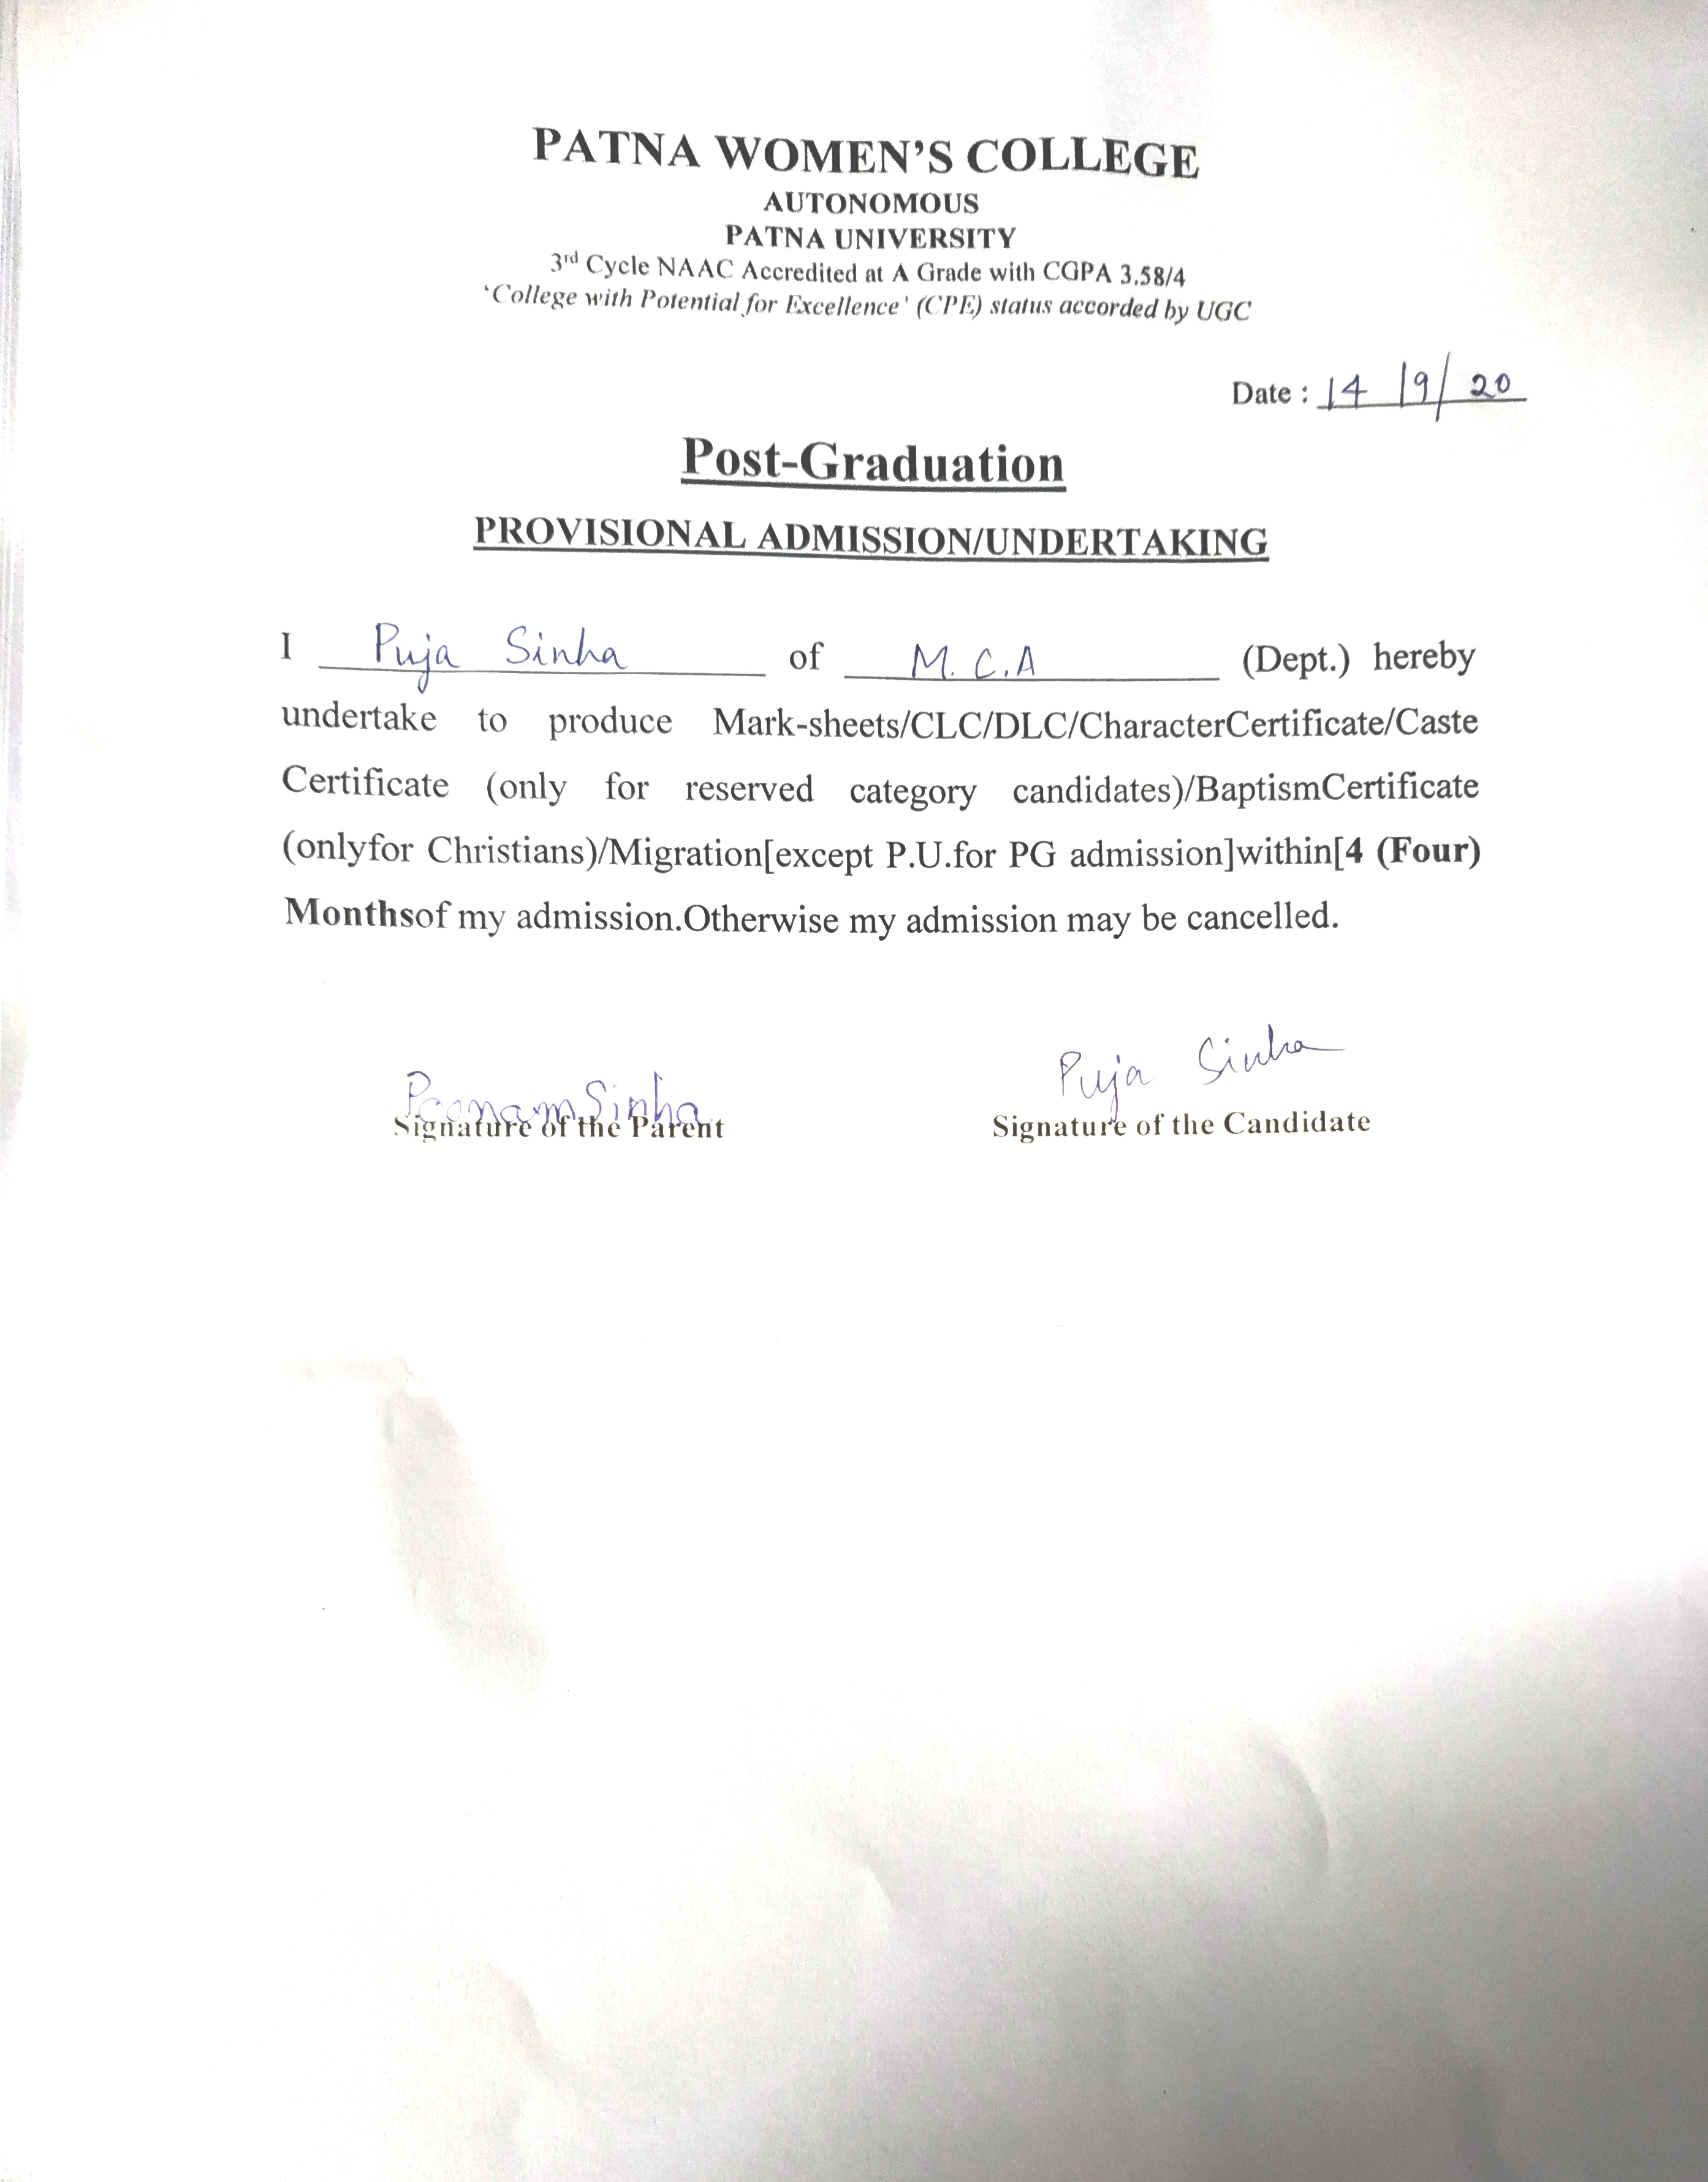 PATNA WOMEN'S COLLEGE
AUTONOMOUS
PATNA UNIVERSITY
3rd Cycle NAAC Accredited at A Grade with CGPA 3.58/4
'College with Potential for Excellence' (CPE) status accorded by UGC
Date : 14/9/20
Post-Graduation
PROVISIONAL ADMISSION/UNDERTAKING
I Puja Sinha of M.C.A (Dept.) hereby
undertake to produce Mark-sheets/CLC/DLC/CharacterCertificate/Caste
Certificate (only for reserved category candidates)/BaptismCertificate
(onlyfor Christians)/Migration[except P.U.for PG admission]within[4 (Four)
Monthsof my admission.Otherwise my admission may be cancelled.
Sinha Puja Sinha
Signature of the Parent Signature of the Candidate